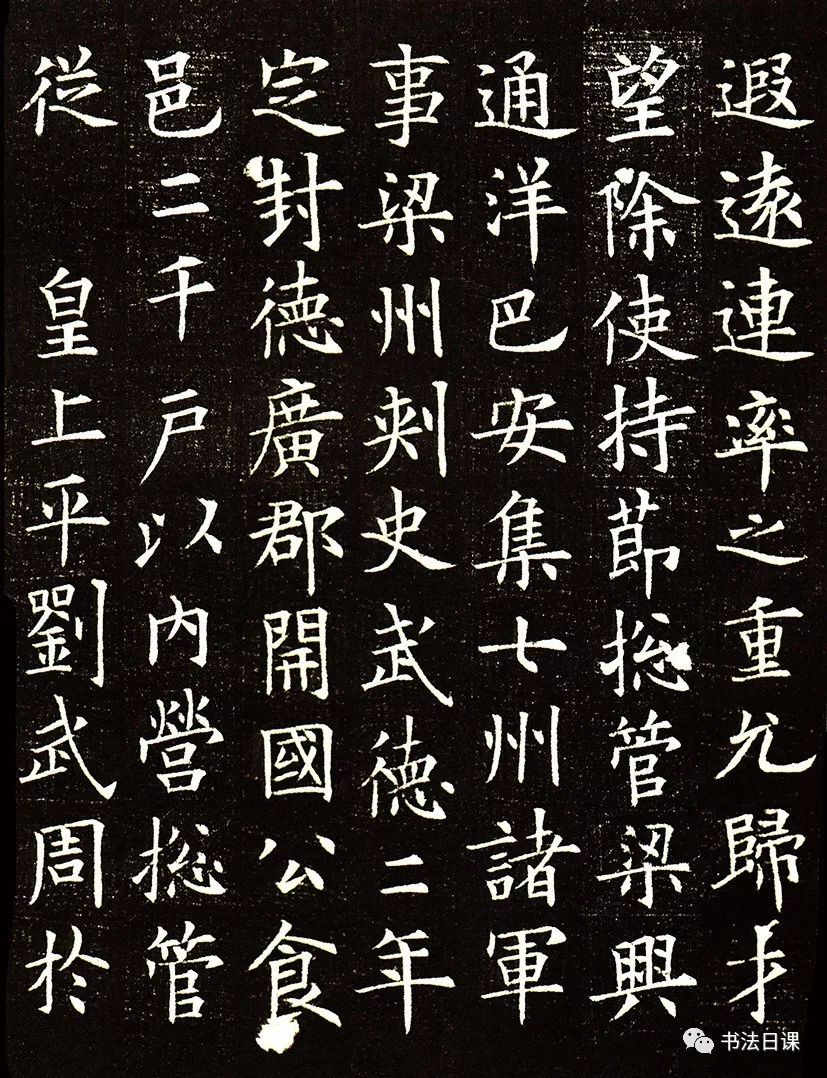 遐遠連率之重允歸才
望除使持節捴管梁興
通洋巴安集七州諸軍
事梁州刾史武德二年
定封德廣郡開國公食
邑二千戶以內營捴管
從 皇上平劉武周於
书法日课